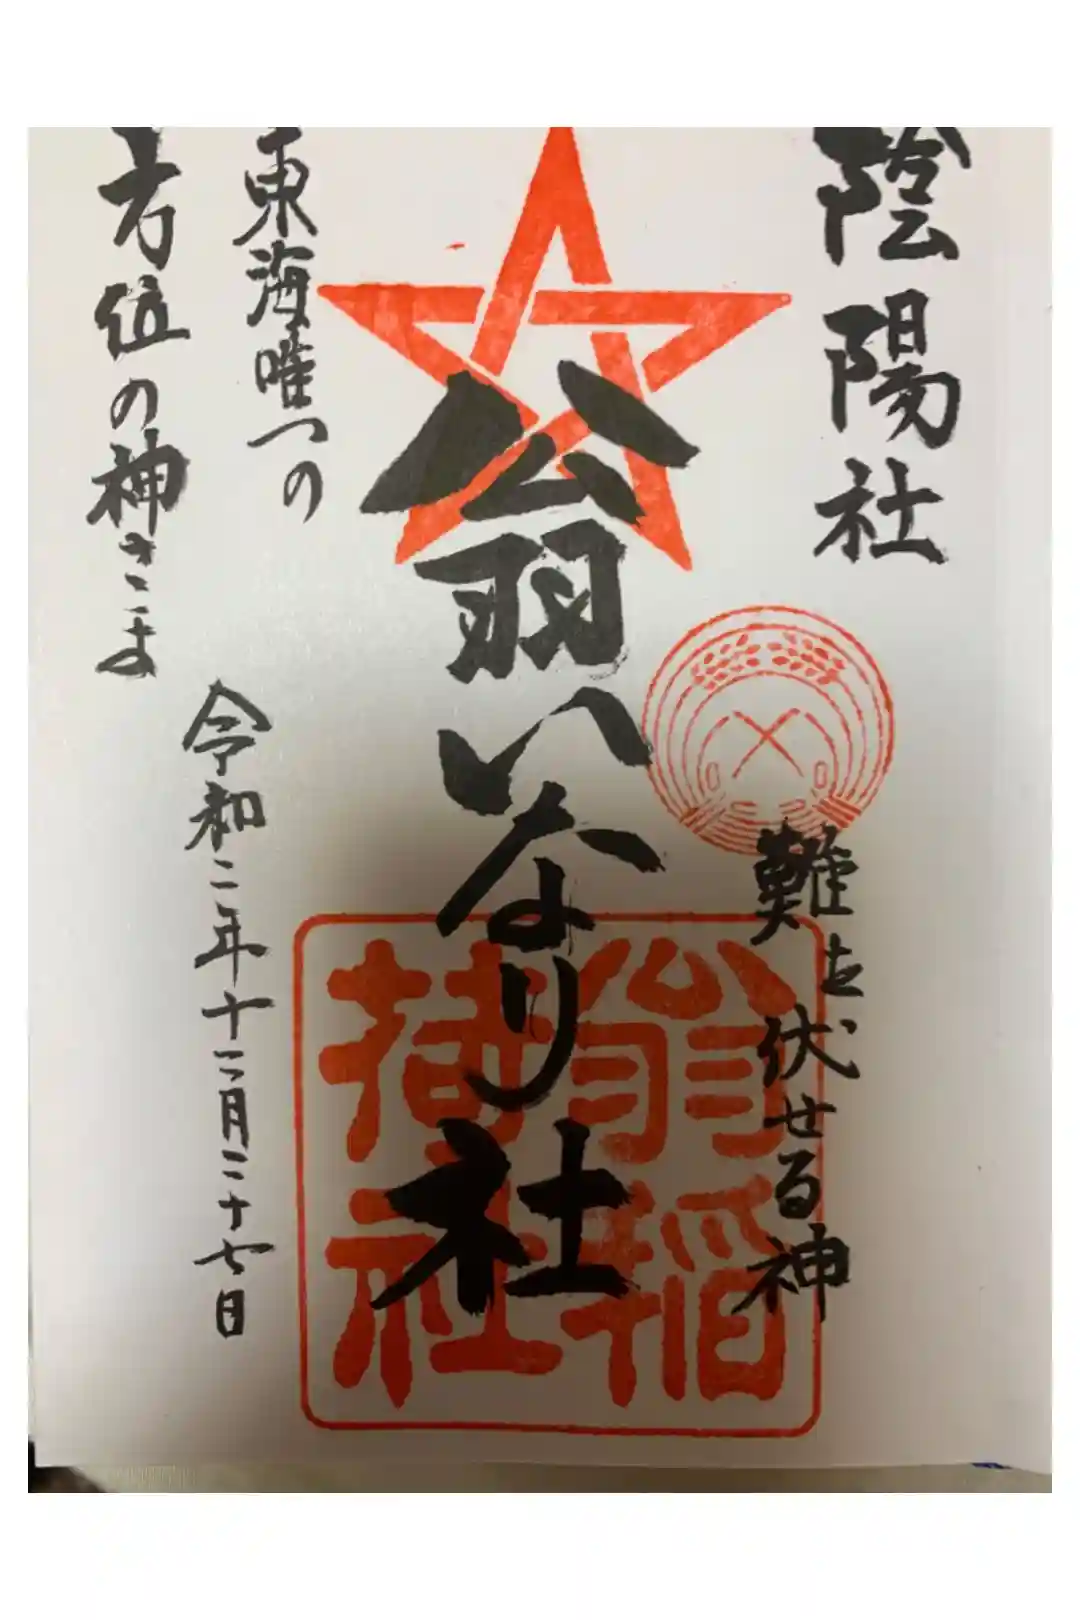 陰陽社
難を伏せる神
翁いなり社
翁稲荷社
東海唯一の
方位の神さま
令和二年十二月二十七日